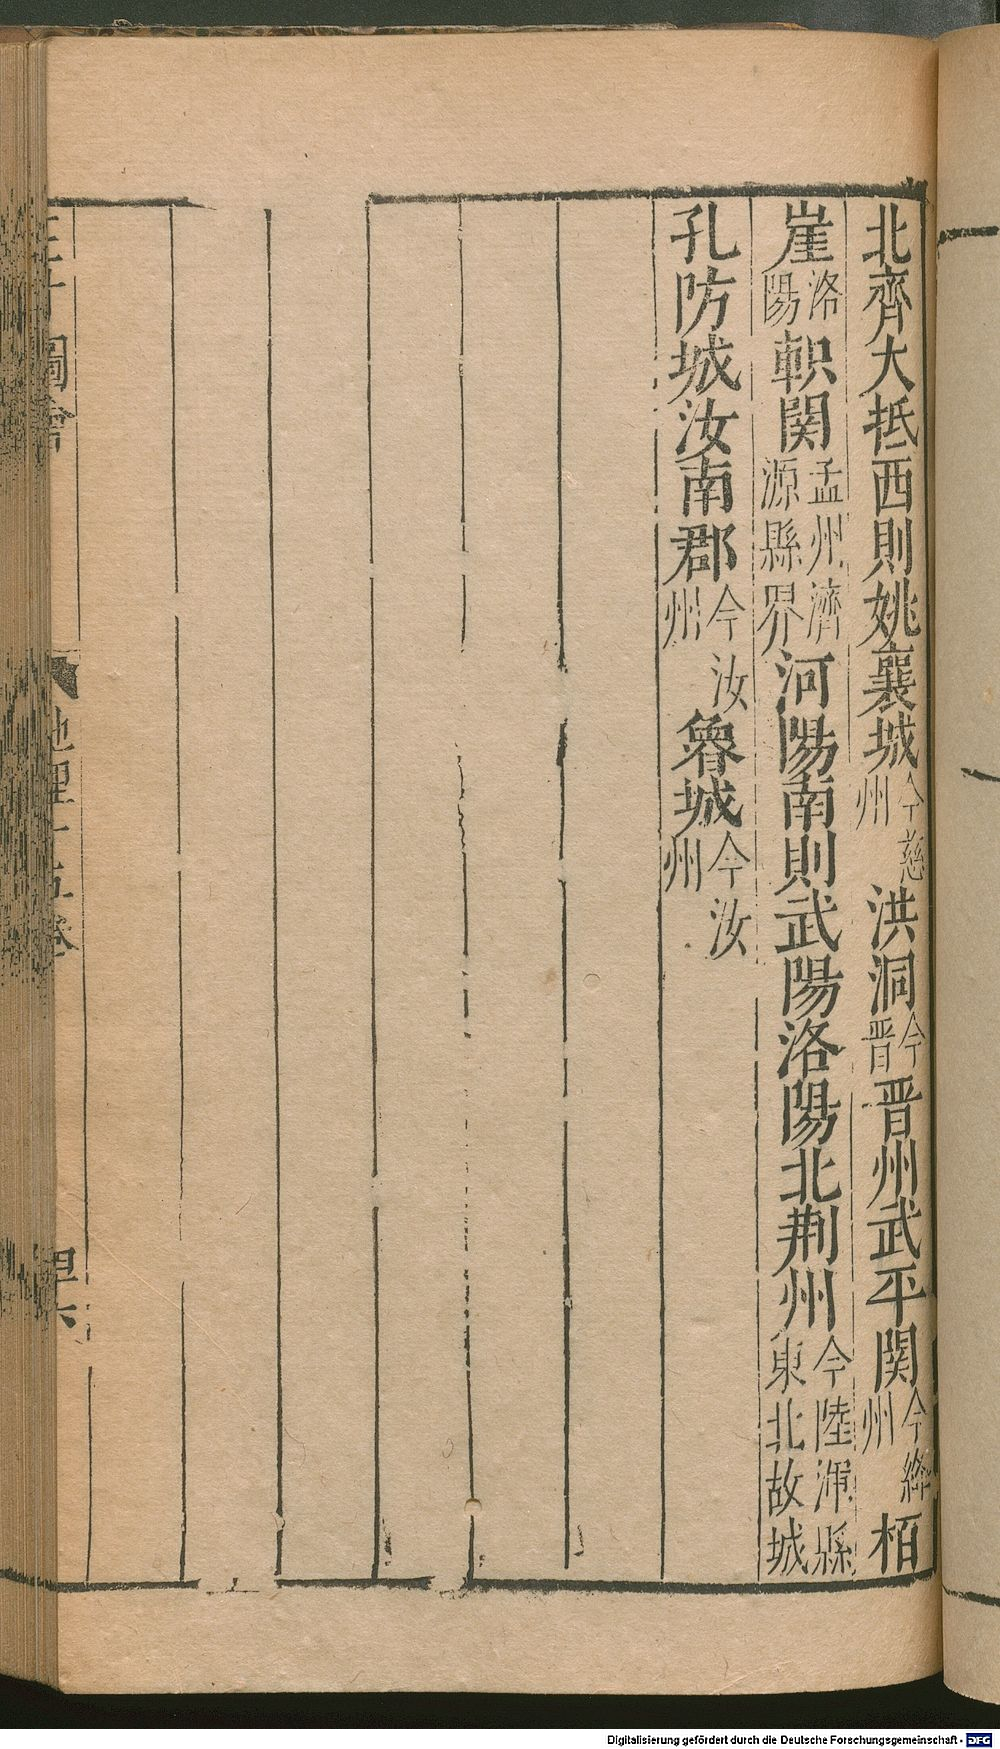 北齊大抵西則姚襄城今慈州洪洞今晋晋州武平関今絳州栢
崖洛陽軹関孟州濟源縣界河陽南則武陽洛陽北荆州今陸渾縣東北故城
孔防城汝南郡今汝州魯城今汝州
圖會
地理十五卷
Digitalisierung gefördert durch die Deutsche Forschungsgemeinschaft - DFG